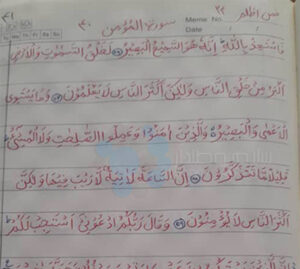 فمن اظلم ٢٤
سورة المؤمن ٤٠
Memo No.
Date / /
فَاسْتَعِذْ بِاللّٰهِ اِنَّهٗ هُوَ السَّمِيْعُ الْبَصِيْرُ ﴿٥٦﴾ لَخَلْقُ السَّمٰوٰتِ وَالْاَرْضِ
اَكْبَرُ مِنْ خَلْقِ النَّاسِ وَلٰكِنَّ اَكْثَرَ النَّاسِ لَا يَعْلَمُوْنَ ﴿٥٧﴾ وَمَا يَسْتَوِى
الْاَعْمٰى وَالْبَصِيْرُ وَالَّذِيْنَ اٰمَنُوْا وَعَمِلُوا الصّٰلِحٰتِ وَلَا الْمُسِيْٓءُ
قَلِيْلًا مَّا تَتَذَكَّرُوْنَ ﴿٥٨﴾ اِنَّ السَّاعَةَ لَاٰتِيَةٌ لَّا رَيْبَ فِيْهَا وَلٰكِنَّ
اَكْثَرَ النَّاسِ لَا يُؤْمِنُوْنَ ﴿٥٩﴾ وَقَالَ رَبُّكُمُ ادْعُوْنِيْٓ اَسْتَجِبْ لَكُمْ